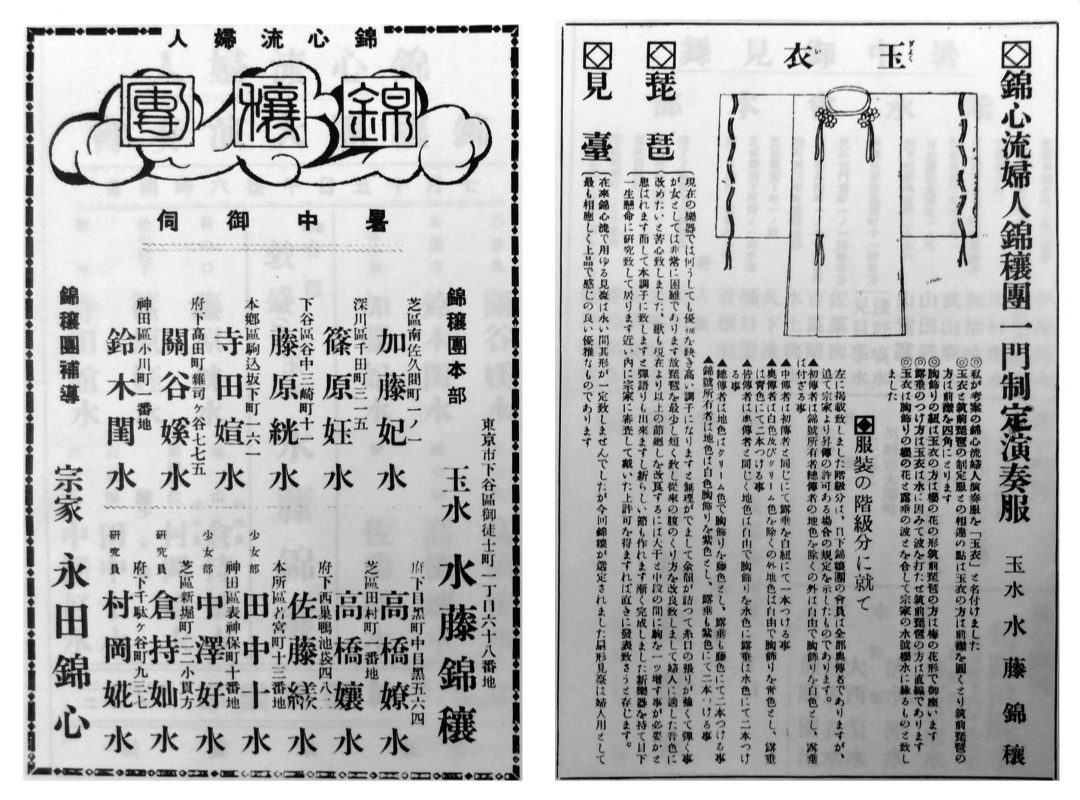 錦心流婦人錦穰團一門制定演奏服
玉水 水藤錦穰
玉衣
◎私が考案の錦心流婦人演奏服を「玉衣」と名付けました
◎玉衣と筑前琵琶の制定服との相違の點は玉衣の方は前襟を圓くとり筑前琵琶の
方は前襟を四角にとります
◎胸飾りの紐は玉衣の方は櫻の花の形筑前琵琶の方は梅の花形で御座います
◎露垂のつけ方は玉衣は水に因みて波を打たせ筑前琵琶の方は直線であります
◎玉衣は胸飾りの櫻の花と露垂の波とを合して宗家の水號櫻水に縁るものと致し
ました
服裝の階級分に就て
左に掲載致しました階級分は、目下錦穰團の會員は全部奥傳者でありますが、
追て宗家より昇傳の許可ある場合の規定を示したものであります。
▲初傳者は(錦號所有者穗傳者の地色を除くの外は自由で胸飾りを白色とし、露垂
は付ざる事
▲中傳者は初傳者と同じにて露垂を白紐にて一本つける事
▲奥傳者は白色及びクリーム色を除くの外地色は自由で胸飾りを青色とし、露垂
は青色にて二本つける事
▲皆傳者は奥傳者と同じく地色は自由で胸飾りを水色に露垂は水色にて二本つけ
る事
▲總傳者は地色はクリーム色で胸飾りを藤色とし、露垂も藤色にて二本つける事
▲錦號所有者は地色は白色胸飾りを紫色とし、露垂も紫色にて二本つける事
琵琶
現在の樂器では何うしても優優を缺き高い調子になりますと無理ができまして余韻が詰つて糸口の張りが強くて彈く事
が女としては非常に困難であります故琵琶を最少し短く致し從來の腹のくり方を改良致しまして婦人に適した音色に
改めたいと苦心致しました、歌も現在より以上の節廻しを改良するには大干と中段の間に胸を一ツ増す事が必要かと
思はれます而して本調子に致しますと彈語りも出來ますし新らしい節も作れます漸く完成しました新樂器を持て目下
一生懸命に研究致して居ります近い內に宗家に審査して戴いた上許可を得ますれば直きに發表致さうと存じます。
見臺
在來錦心流で用ゆる見臺は永い間其形が一定致しませんでしたが今回錦穰が選定されました扇形見臺は婦人用として
最も相應しく上品で感じの良い優雅なものであります
錦心流婦人
錦穰團
暑中御伺
錦穰團本部
東京市下谷區御徒士町一丁目六十八番地
玉水 水藤錦穰
芝區南佐久間町一ノ一
加藤妃水
深川區千田町三一五
篠原妊水
下谷區谷中三崎町十一
藤原絖水
本鄕區駒込坂下町一六一
寺田媗水
府下高田町雜司ケ谷七七五
關谷媛水
神田區小川町一番地
鈴木閨水
府下目黑町中目黑五六四
高橋嫽水
芝區田村町一番地
高橋孃水
府下西巢鴨池袋四八二
佐藤水
本所區若宮町十三番地
田中十水
少女部
神田區表神保町十番地
中澤好水
少女部
芝區新堀町二二小貫方
倉持妯水
研究員
府下千駄ケ谷町九三七
村岡娓水
研究員
錦穰團補導
宗家 永田錦心